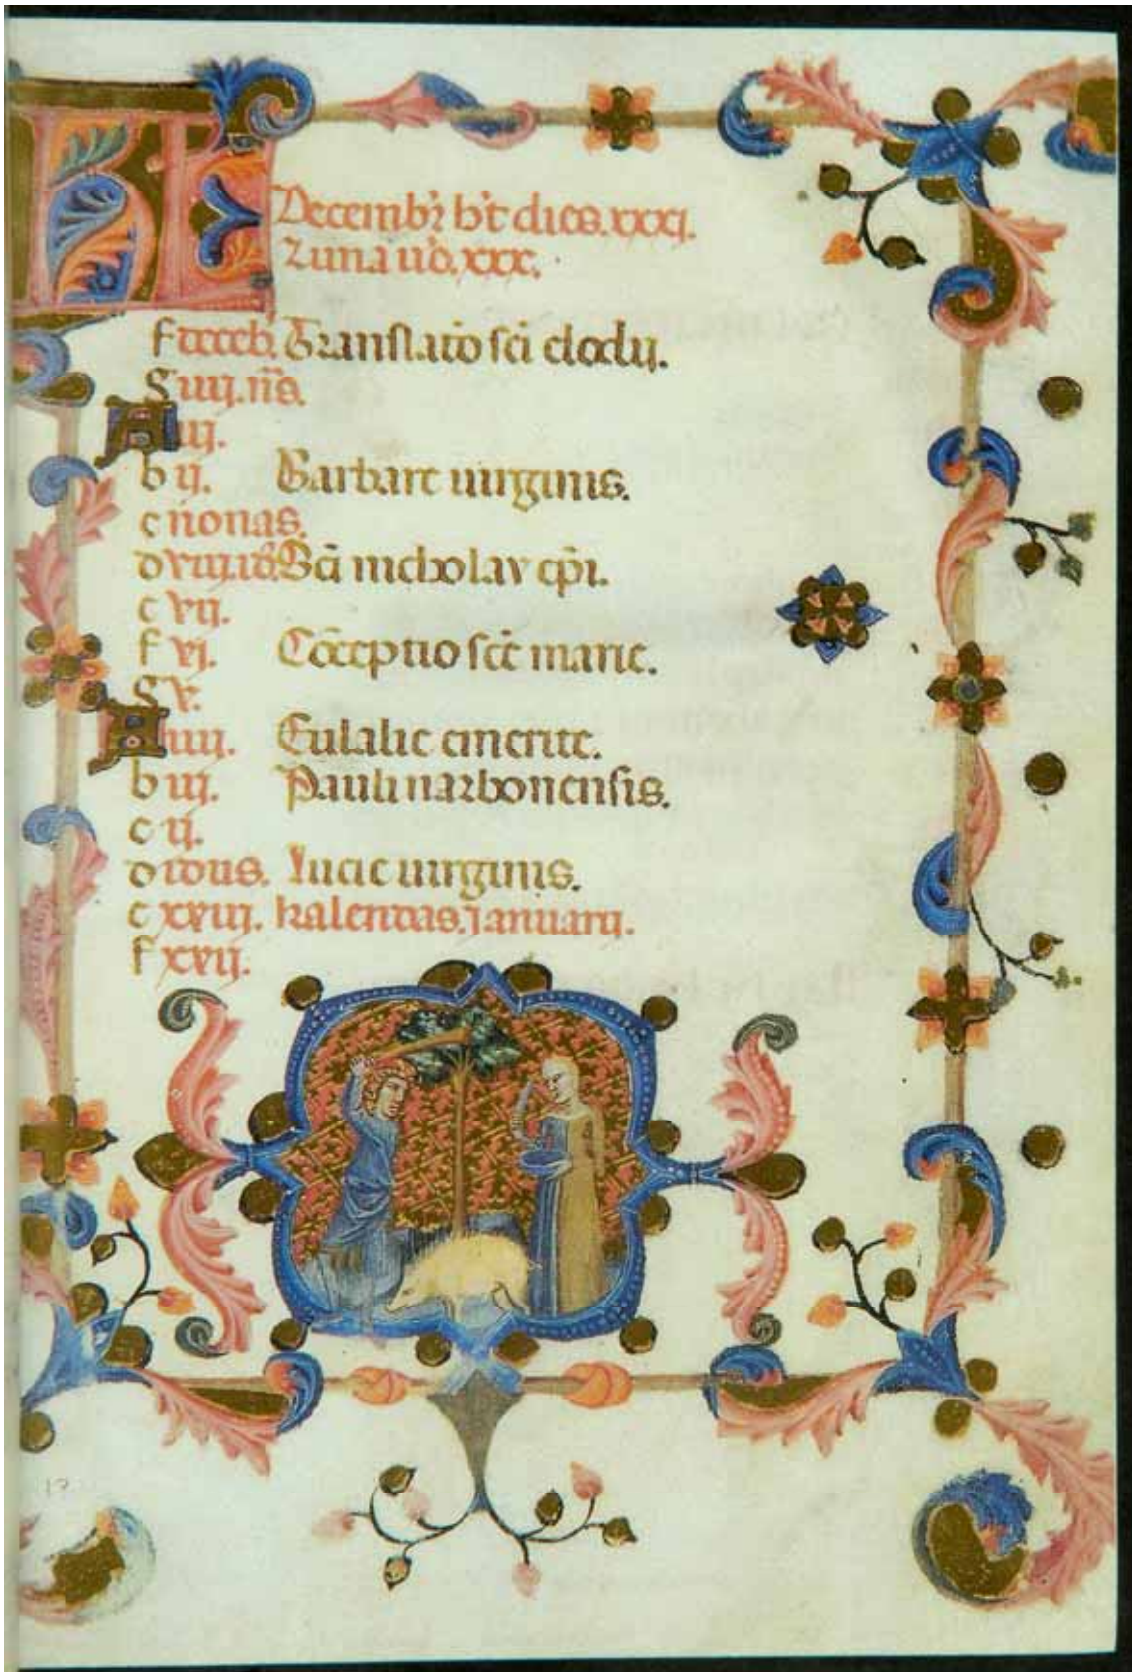 KL
Decembr̃ h̃t dies. xxxi.
Luna ũo. xxx.
f Translatio sc̃i elodij.
g iiij. ñs.
A iij.
b ij. Barbare uirginis.
c nonas.
d viij. id̃. Sc̃i nicholay ep̃i.
e vij.
f vj. Cõceptio sc̃e marie.
g v.
A iiij. Eulalie emerite.
b iij. Pauli narbonensis.
c ij.
d idus. Lucie uirginis.
e xviiij. kalendas. januarij.
f xvij.
12